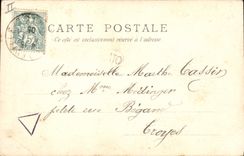 II
CARTE POSTALE
Ce côté est exclusivement réservé à l'adresse
Mademoiselle Marthe Cassin
chez Mme
petite rue Bégand
Troyes